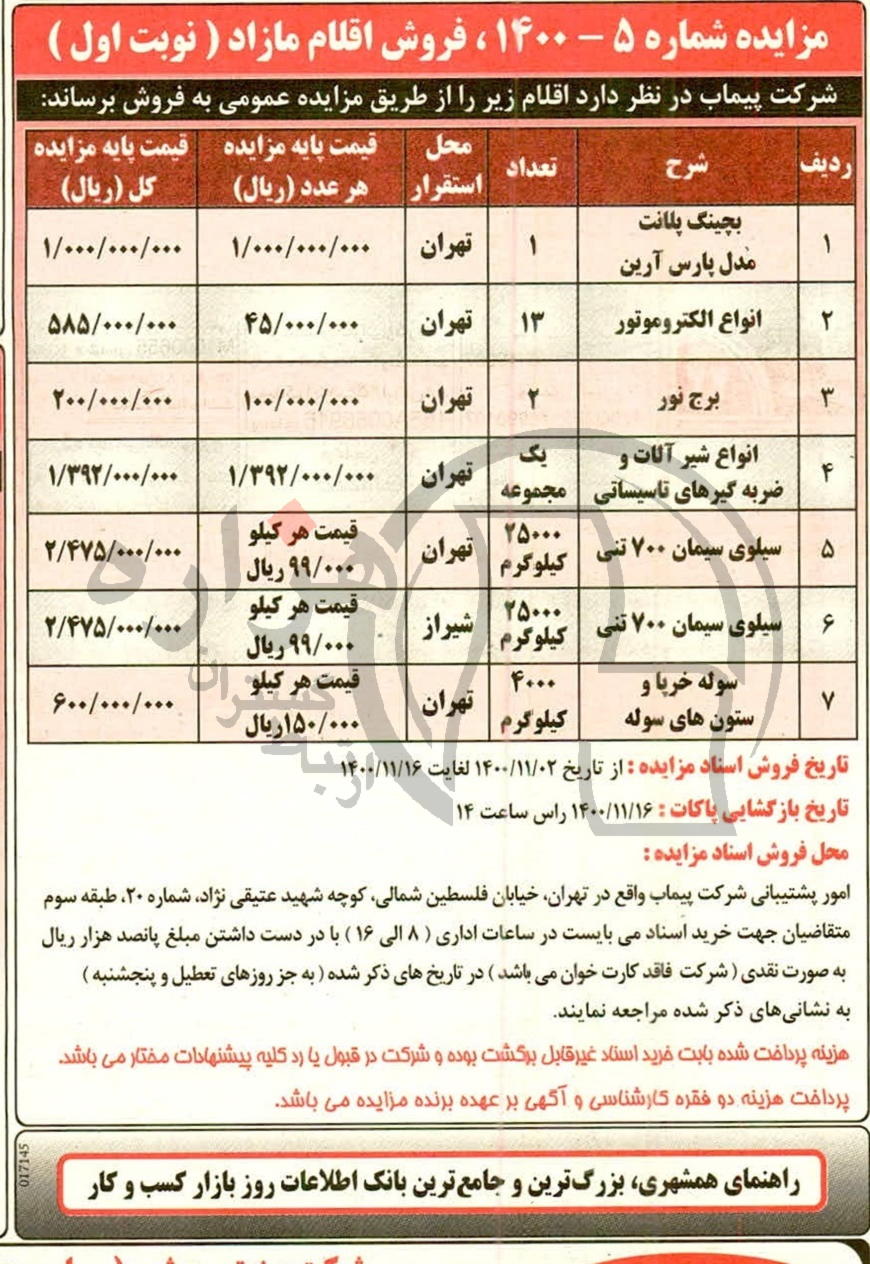 مزایده شماره ۵ – ۱۴۰۰ ، فروش اقلام مازاد ( نوبت اول )
شرکت پیماب در نظر دارد اقلام زیر را از طریق مزایده عمومی به فروش برساند:
ردیف شرح تعداد محل استقرار قیمت پایه مزایده هر عدد (ریال) قیمت پایه مزایده کل (ریال)
۱ بچینگ پلانت مدل پارس آرین ۱ تهران ۱/۰۰۰/۰۰۰/۰۰۰ ۱/۰۰۰/۰۰۰/۰۰۰
۲ انواع الکتروموتور ۱۳ تهران ۴۵/۰۰۰/۰۰۰ ۵۸۵/۰۰۰/۰۰۰
۳ برج نور ۲ تهران ۱۰۰/۰۰۰/۰۰۰ ۲۰۰/۰۰۰/۰۰۰
۴ انواع شیر آلات و ضربه گیرهای تاسیساتی یک مجموعه تهران ۱/۳۹۲/۰۰۰/۰۰۰ ۱/۳۹۲/۰۰۰/۰۰۰
۵ سیلوی سیمان ۷۰۰ تنی ۲۵۰۰۰ کیلوگرم تهران قیمت هر کیلو ۹۹/۰۰۰ ریال ۲/۴۷۵/۰۰۰/۰۰۰
۶ سیلوی سیمان ۷۰۰ تنی ۲۵۰۰۰ کیلوگرم شیراز قیمت هر کیلو ۹۹/۰۰۰ ریال ۲/۴۷۵/۰۰۰/۰۰۰
۷ سوله خرپا و ستون های سوله ۴۰۰۰ کیلوگرم تهران قیمت هر کیلو ۱۵۰/۰۰۰ریال ۶۰۰/۰۰۰/۰۰۰
تاریخ فروش اسناد مزایده : از تاریخ ۱۴۰۰/۱۱/۰۲ لغایت ۱۴۰۰/۱۱/۱۶
تاریخ بازگشایی پاکات : ۱۴۰۰/۱۱/۱۶ راس ساعت ۱۴
محل فروش اسناد مزایده :
امور پشتیبانی شرکت پیماب واقع در تهران، خیابان فلسطین شمالی، کوچه شهید عتیقی نژاد، شماره ۲۰، طبقه سوم
متقاضیان جهت خرید اسناد می بایست در ساعات اداری ( ۸ الی ۱۶ ) با در دست داشتن مبلغ پانصد هزار ریال
به صورت نقدی ( شرکت فاقد کارت خوان می باشد ) در تاریخ های ذکر شده ( به جز روزهای تعطیل و پنجشنبه )
به نشانی‌های ذکر شده مراجعه نمایند.
هزینه پرداخت شده بابت خرید اسناد غیرقابل برگشت بوده و شرکت در قبول یا رد کلیه پیشنهادات مختار می باشد.
پرداخت هزینه دو فقره کارشناسی و آگهی بر عهده برنده مزایده می باشد.
017145
راهنمای همشهری، بزرگ‌ترین و جامع‌ترین بانک اطلاعات روز بازار کسب و کار